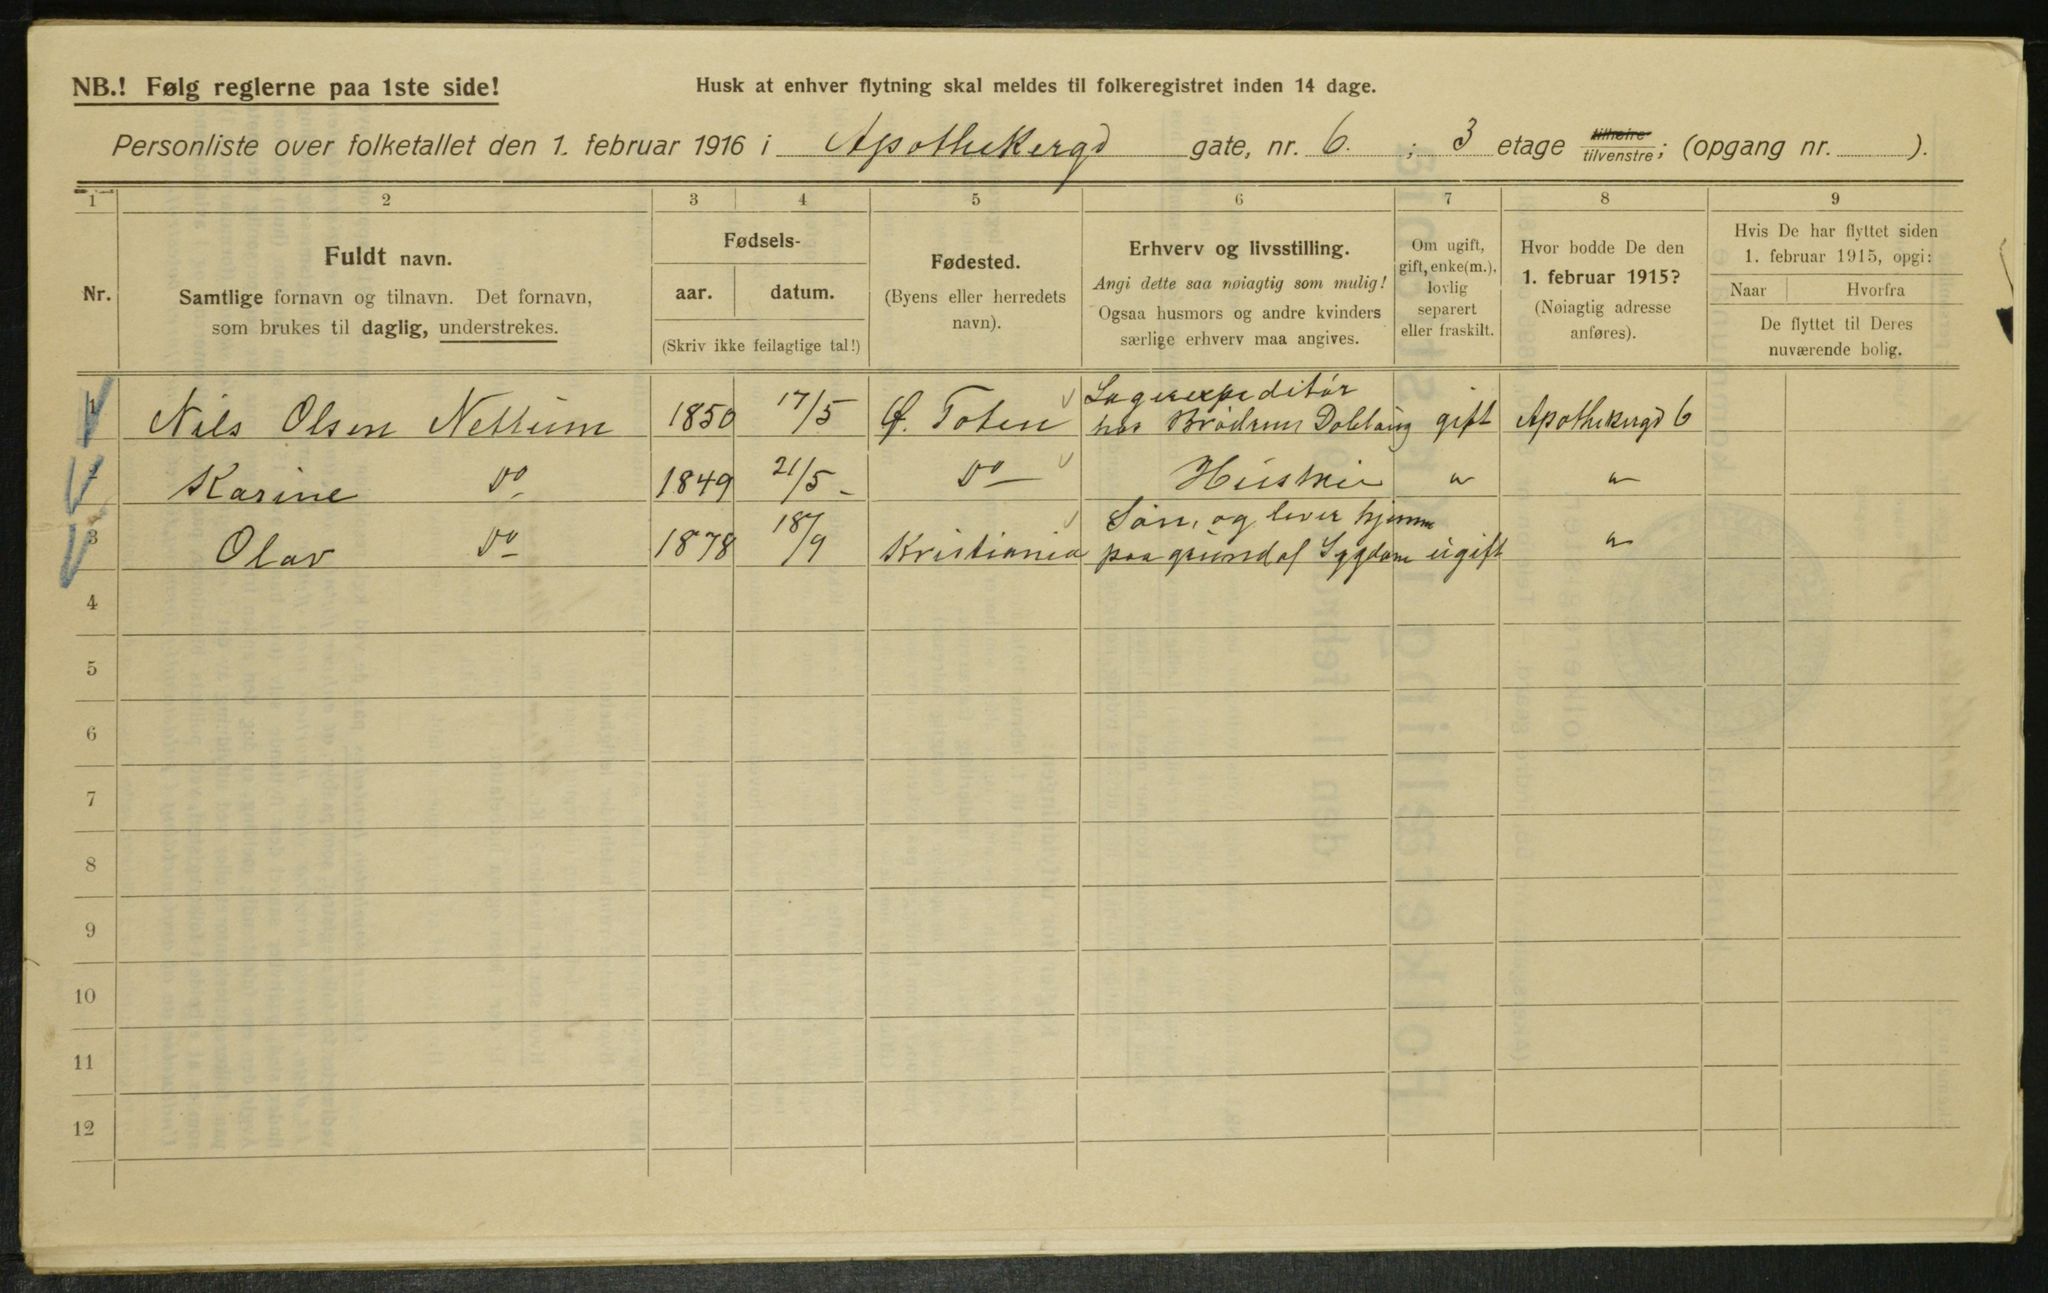 NB.! Følg reglerne paa 1ste side!
Husk at enhver flytning skal meldes til folkeregistret inden 14 dage.
Personliste over folketallet den 1. februar 1916 i Apothekergd gate, nr. 6. ; 3 etage tilhøire tilvenstre; (opgang nr. ).
1 2 3 4 5 6 7 8 9
Nr.
Fuldt navn.
Samtlige fornavn og tilnavn. Det fornavn,
som brukes til daglig, understrekes.
Fødsels-
aar. datum.
(Skriv ikke feilagtige tal!)
Fødested.
(Byens eller herredets
navn).
Erhverv og livsstilling.
Angi dette saa nøiagtig som mulig!
Ogsaa husmors og andre kvinders
særlige erhverv maa angives.
Om ugift,
gift, enke(m.),
lovlig
separert
eller fraskilt.
Hvor bodde De den
1. februar 1915?
(Nøiagtig adresse
anføres).
Hvis De har flyttet siden
1. februar 1915, opgi:
Naar Hvorfra
De flyttet til Deres
nuværende bolig.
1 Nils Olsen Nettum 1850 17/5 Ø. Toten Lagerexpeditör
hos Brödrene Dobloug gift Apothekergd 6
2 Karine Do 1849 21/5 Do Hustru " "
3 Olav Do 1878 18/9 Kristiania Sön, og lever hjemme
paa grund af Sygdom ugift "
4
5
6
7
8
9
10
11
12